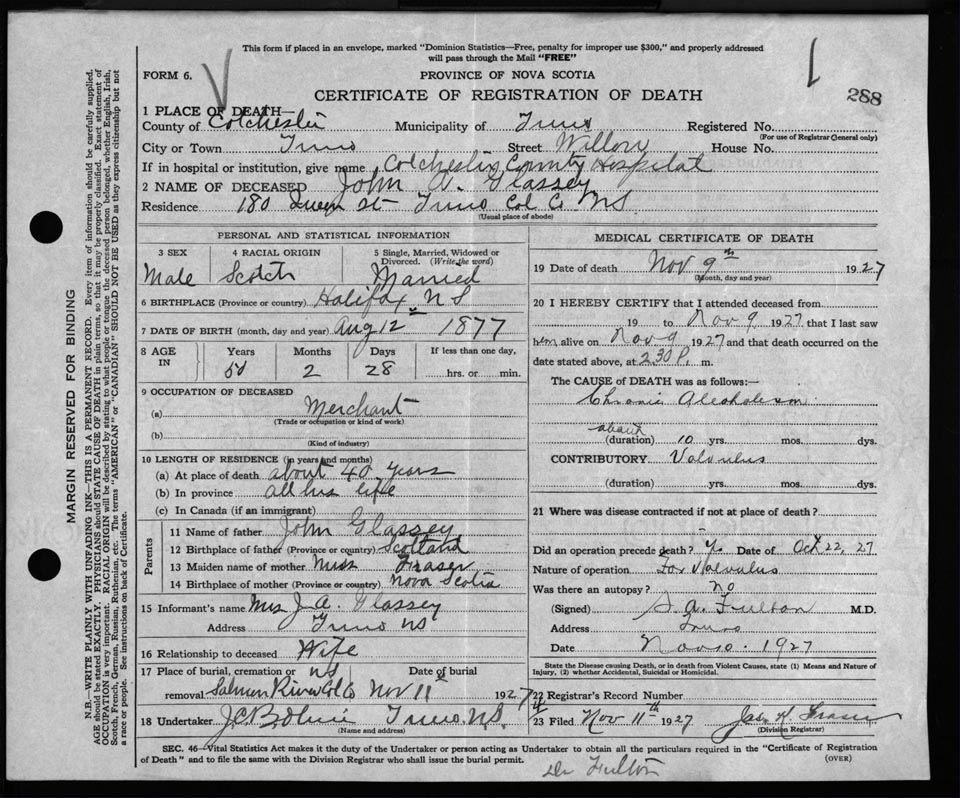 This form if placed in an envelope, marked "Dominion Statistics—Free, penalty for improper use $300," and properly addressed
will pass through the Mail "FREE"
FORM 6.
PROVINCE OF NOVA SCOTIA
CERTIFICATE OF REGISTRATION OF DEATH
288
1 PLACE OF DEATH
County of Colchester Municipality of Truro Registered No.
(For use of Registrar General only)
City or Town Truro Street Willow House No.
If in hospital or institution, give name Colchester County Hospital
2 NAME OF DECEASED John A. Glassey
Residence 180 Queen St Truro Col Co. NS
(Usual place of abode)
PERSONAL AND STATISTICAL INFORMATION
3 SEX 4 RACIAL ORIGIN 5 Single, Married, Widowed or Divorced. (Write the word)
Male Scotch Married
6 BIRTHPLACE (Province or country) Halifax NS
7 DATE OF BIRTH (month, day and year) Aug 12 1877
8 AGE IN Years Months Days If less than one day,
50 2 28 hrs. or min.
9 OCCUPATION OF DECEASED
(a) Merchant
(Trade or occupation or kind of work)
(b)
(Kind of industry)
10 LENGTH OF RESIDENCE (in years and months)
(a) At place of death about 40 years
(b) In province all his life
(c) In Canada (if an immigrant)
Parents
11 Name of father John Glassey
12 Birthplace of father (Province or country) Scotland
13 Maiden name of mother Miss Fraser
14 Birthplace of mother (Province or country) Nova Scotia
15 Informant's name Mrs J. A. Glassey
Address Truro NS
16 Relationship to deceased Wife
17 Place of burial, cremation or NS Date of burial
removal Salmon River Col Co Nov 11 1927
18 Undertaker Truro, N.S.
(Name and address)
MEDICAL CERTIFICATE OF DEATH
19 Date of death Nov 9th 1927
(Month, day and year)
20 I HEREBY CERTIFY that I attended deceased from
19 to Nov 9 1927 that I last saw
him alive on Nov 9 1927 and that death occurred on the
date stated above, at 2.30 P. m.
The CAUSE OF DEATH was as follows:—
Chronic Alcoholism
about
(duration) 10 yrs. mos. dys.
CONTRIBUTORY Volvulus
(duration) yrs. mos. dys.
21 Where was disease contracted if not at place of death?
Did an operation precede death? Date of Oct 22, 27
Nature of operation For Volvulus
Was there an autopsy? no
(Signed) S. A. Fulton M.D.
Address Truro
Date 1927
State the Disease causing Death, or in death from Violent Causes, state (1) Means and Nature of
Injury, (2) whether Accidental, Suicidal or Homicidal.
22 Registrar's Record Number
23 Filed Nov 11th 1927 Jas. H. Fraser
(Division Registrar)
SEC. 46—Vital Statistics Act makes it the duty of the Undertaker or person acting as Undertaker to obtain all the particulars required in the "Certificate of Registration
of Death" and to file the same with the Division Registrar who shall issue the burial permit.
(OVER)
Dr Fulton
MARGIN RESERVED FOR BINDING
N.B.—WRITE PLAINLY WITH UNFADING INK—THIS IS A PERMANENT RECORD. Every item of information should be carefully supplied.
AGE should be stated EXACTLY. PHYSICIANS should STATE CAUSE OF DEATH in plain terms, so that it may be properly classified. Exact statement of
OCCUPATION is very important. RACIAL ORIGIN will be described by stating to what people or tongue the deceased person belonged, whether English, Irish,
Scotch, French, German, Russian, Ruthenian, etc. The terms "AMERICAN" or "CANADIAN" SHOULD NOT BE USED as they express citizenship but not
a race or people. See instructions on back of Certificate.